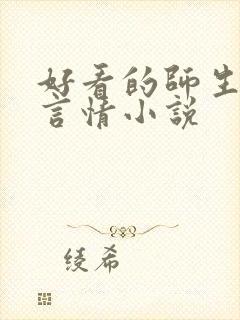 好看的師生
言情小說
綾希